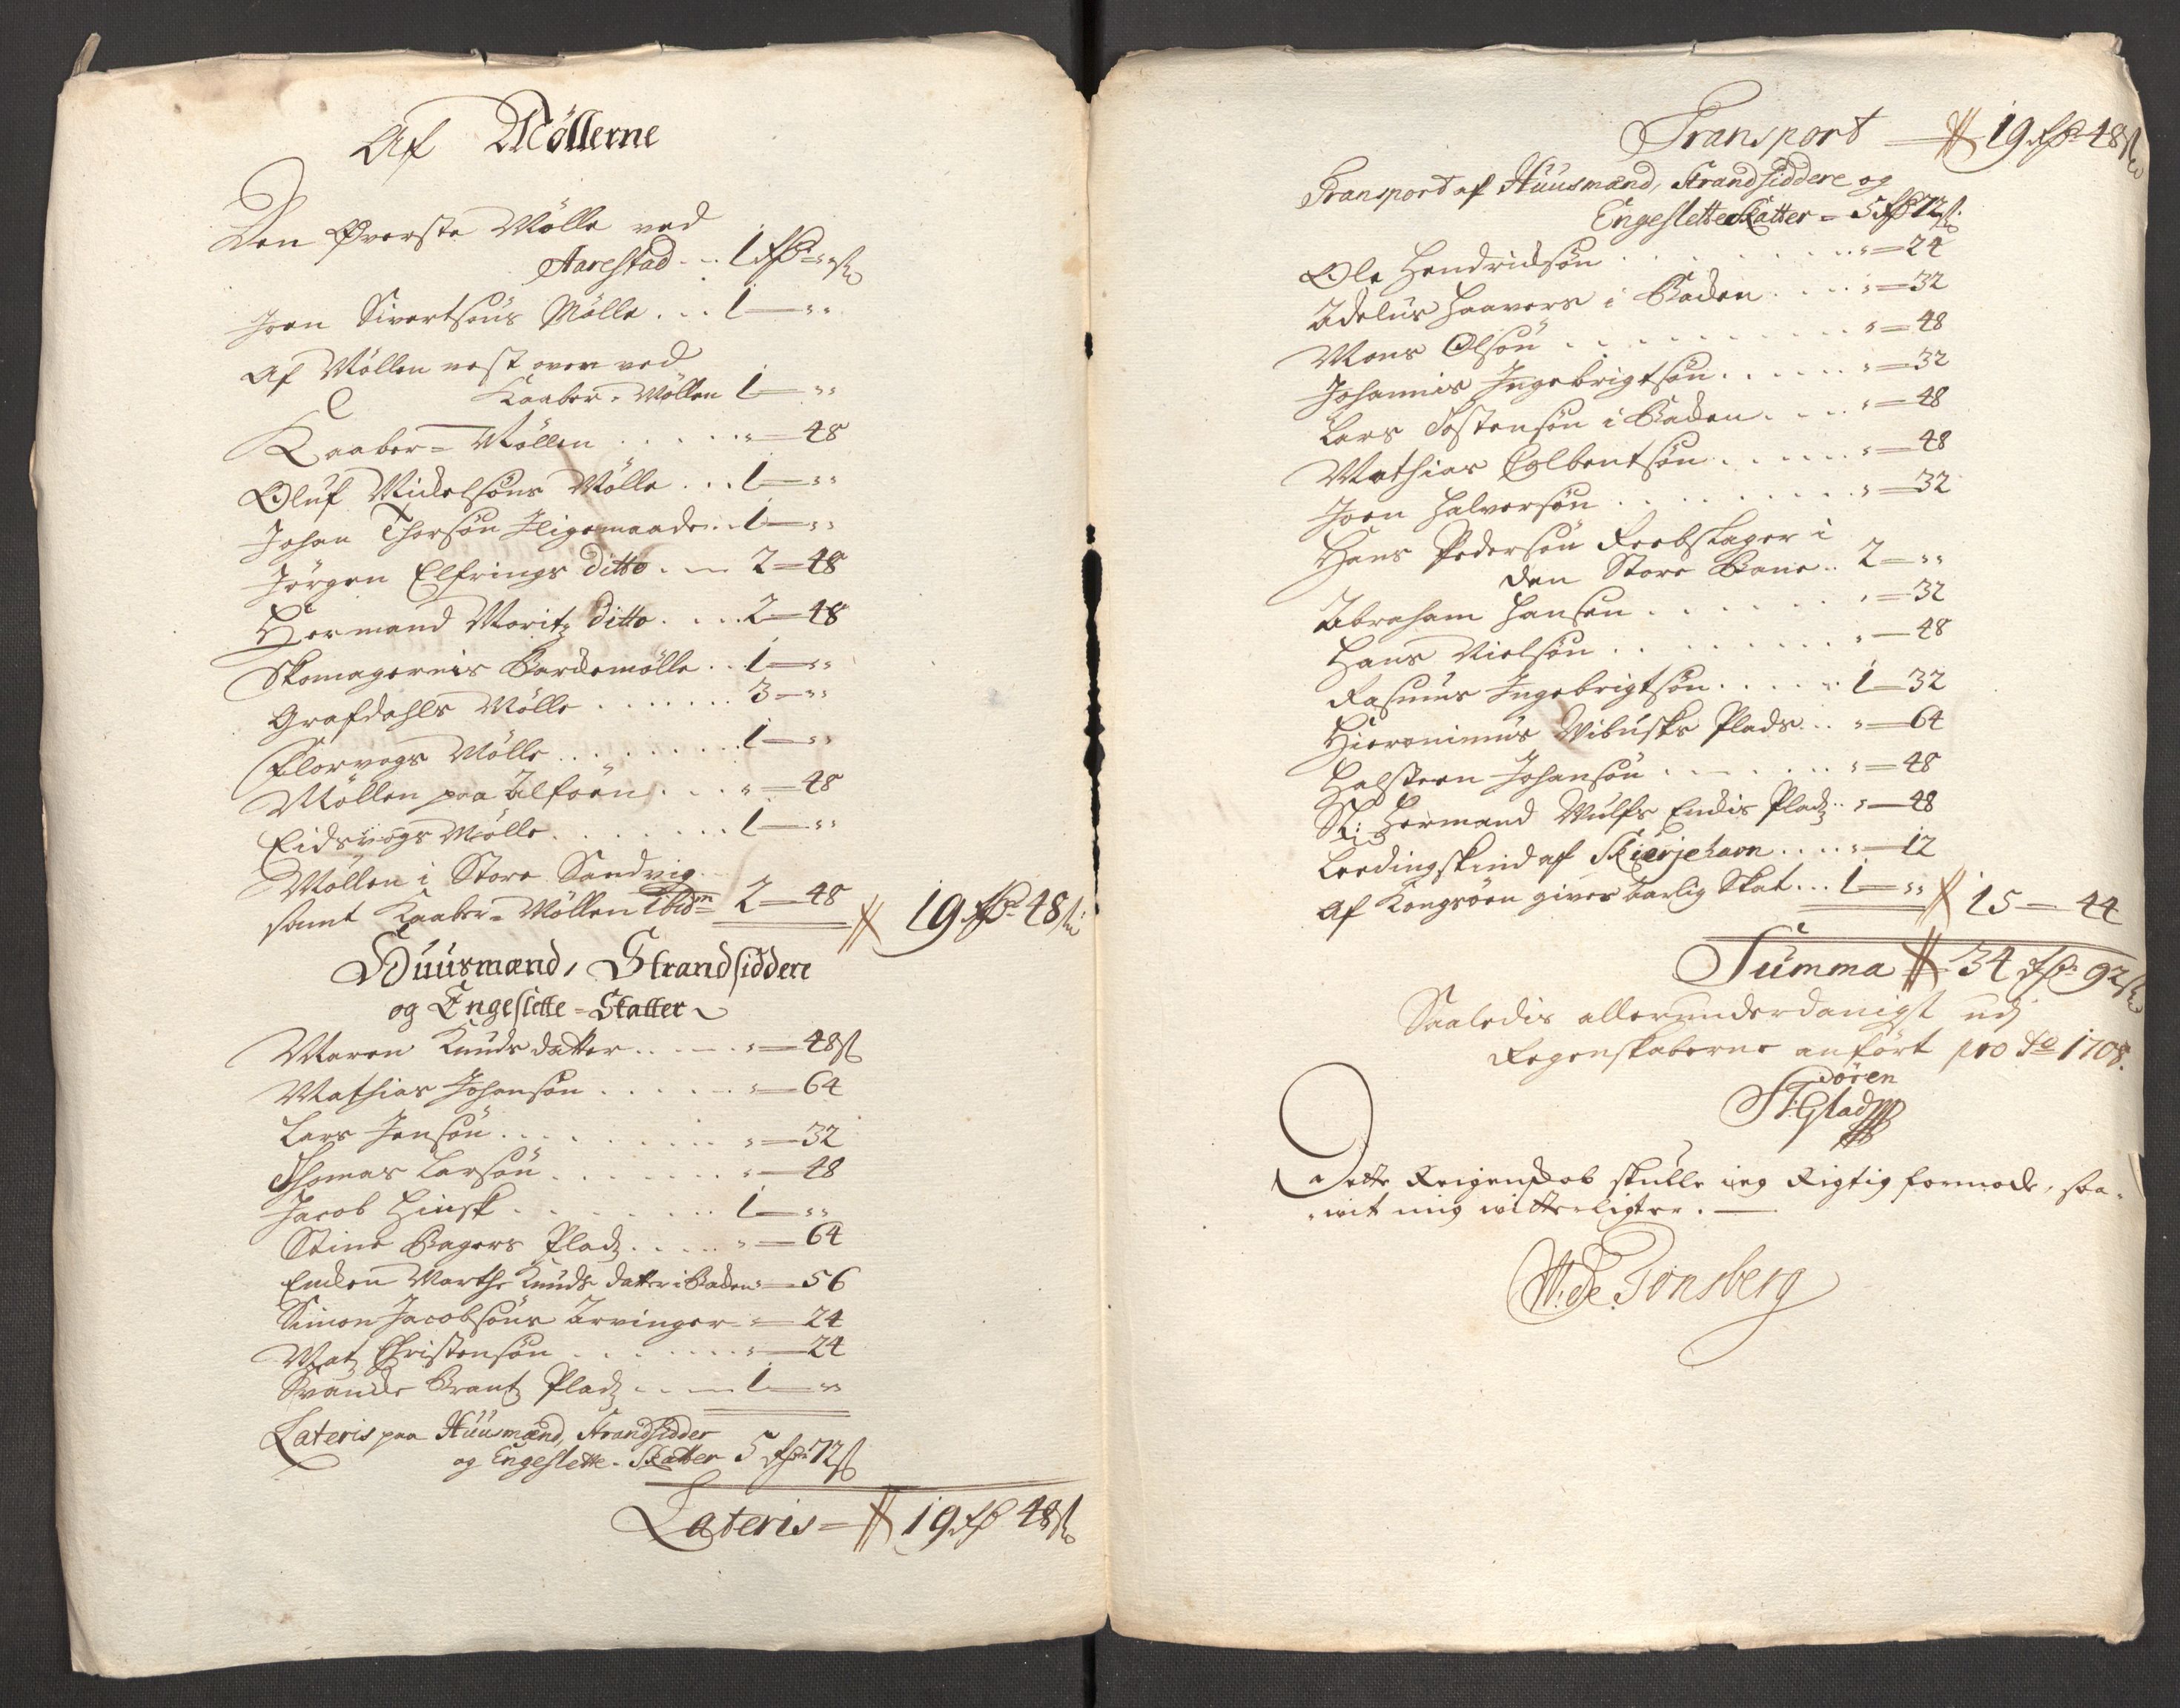 Af Möllerne
Den Øverste Mölle ved
Aarestad . . 1 Rdr " s
Joen Sivertsøns Mölle . . . 1 — "
Af Möllen nest oven ved
Kaaber-Möllen 1 — "
Kaaber-Möllen . . . . . " — 48
Oluf Mickelsøns Mölle . . . 1 — "
Johan Thorsøn Iligemaade . . 1 — "
Jørgen Elfrings ditto . . 2 — 48
Hermand Moritz ditto . . . . 2 — 48
Skomagernis Barckemölle . . 1 — "
Grafdahls Mölle . . . . . . . 3 — "
Florvogs Mölle . . . . . . . 1 — "
Möllen paa Alföen . . . " — 48
Eidsvogs Mölle . . . . . . . 1 — "
Möllen i Store Sandvig
samt Kaaber-Möllen Ibidm 2 — 48 19 Rdr 48 s
Huusmænd, Strandsiddere
og Engeslette-Skatter
Maren Knudsdatter . . . . . " — 48 s
Mathias Johansøn . . . . . . " — 64
Lars Jensøn . . . . . . . . " — 32
Thomas Larsøn . . . . . . . " — 48
Jacob Hinsk . . . . . . . . 1 — "
Stine Bagers Pladz . . . . . " — 64
Encken Marthe Knudsdatter i Backen " — 56
Simon Jacobsøns Arvinger " — 24
Matz Christensøn . . . . . . " — 24
Svancke Brantz Pladz . . . . 1 — "
Lateris paa Huusmænd, Strandsidder
og Engeslette-Skatter 5 Rdr 72 s
Lateris — 19 Rdr 48 s
Transport — 19 Rdr 48 s
Transport af Huusmænd, Strandsiddere og
Engeslette Skatter — 5 Rdr 72 s
Ole Hendricksøn . . . . . . . . " — 24
Adelus Haavers i Backen . . . . " — 32
Mons Olsøn . . . . . . . . . . " — 48
Johannis Ingebrigtsøn . . . . . . " — 32
Lars Tostensøn i Backen . . . . " — 48
Mathias Colbentsøn . . . . . " — 48
Joen Halvorsøn . . . . . . . . " — 32
Hans Pedersøn Reebslager i
den Store Bane . . 2 — "
Abraham Hansen . . . . . . . " — 32
Hans Nielsøn . . . . . . . . " — 48
Rasmus Ingebrigtsøn . . . . . 1 — 32
Hieronimus Wibuskes Plads . . . " — 64
Halsteen Johansøn . . . . . . . " — 48
Sl: Hermand Wulfs Enckis Pladz . . " — 48
Leedingskind af Skierjehavn . . . . " — 12
Af Kongsöen gives aarlig Skat . . . 1 — " 15 — 44
Summa 34 Rdr 92 s
Saaledis allerunderdanigst udj
Regenskaberne anført pro Ao 1708.
Sören
Stgladz
Dette Reigenskab skulle ieg Rigtig formode, saa-
-wit mig witterligt er. —
W: De Tonsberg